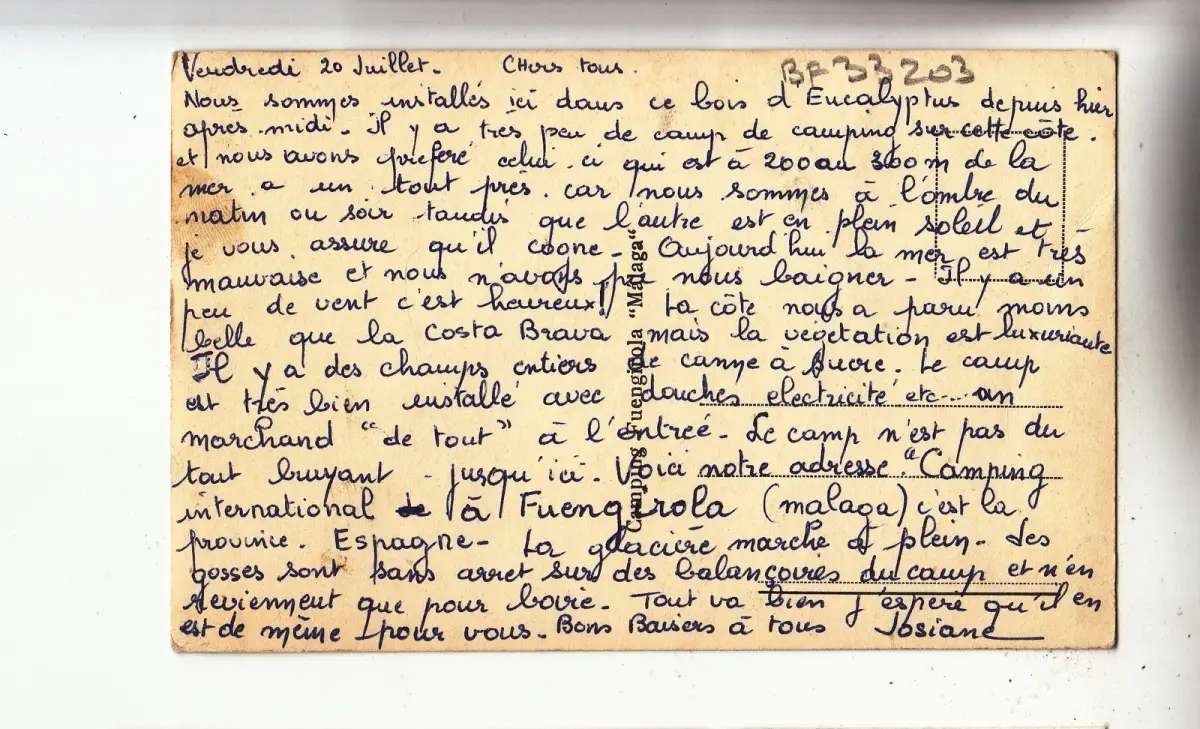 Vendredi 20 Juillet. CHers tous.
BF 33203
Nous sommes installés ici dans ce bois d'Eucalyptus depuis hier
après. midi. Il y a très peu de camp de camping sur cette côte.
et nous avons préféré celui. ci qui est à 200 au 300m de la
mer a un tout près. car nous sommes à l'ombre du
matin ou soir tandis que l'autre est en plein soleil et
je vous assure qu'il cogne. Aujourd'hui la mer est très
mauvaise et nous n'avons pu nous baigner. Il y a un
peu de vent c'est heureux! La côte nous a paru moins
belle que la Costa Brava mais la végétation est luxuriante
Il y a des champs entiers de canne à sucre. Le camp
est très bien installé avec douches electricité etc... un
marchand "de tout" à l'entreé. Le camp n'est pas du
tout bruyant - jusqu'ici. Voici notre adresse. "Camping
international à Fuengirola (malaga) c'est la
province. Espagne. La glacière marche à plein. Les
gosses sont sans arret sur des balançoires du camp et n'en
reviennent que pour boire. Tout va bien j'espère qu'il en
est de même pour vous. Bons Baisers à tous Josiane
Camping Fuengirola "Malaga"